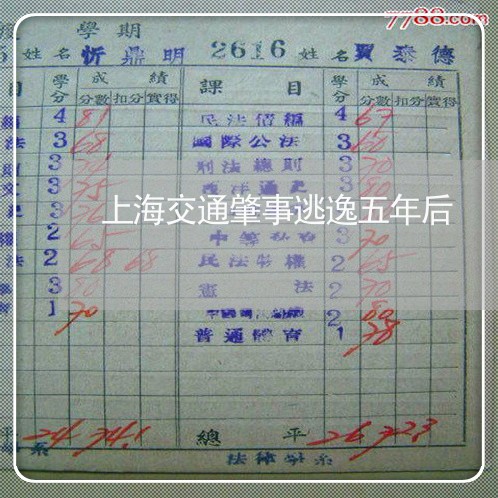 7788.com
學期
5 姓名 忻鼎明 2616 姓名 賈泰德
目 學分 成績 課目 學分 成績
分數 扣分 實得 分數 扣分 實得
4 81 民法債編 4 67
法 3 68 國際公法 3 60
3 刑法總則 3 70
3 75 西洋通史 3 80
上海交通肇事逃逸五年后
2 65 3 70
法 2 68 68 民法物權 2 65
3 80 憲法 2 70
1 70 2 80
普通體育 1 78
平 24 74.1 總平 26 72.3
系 法律學系